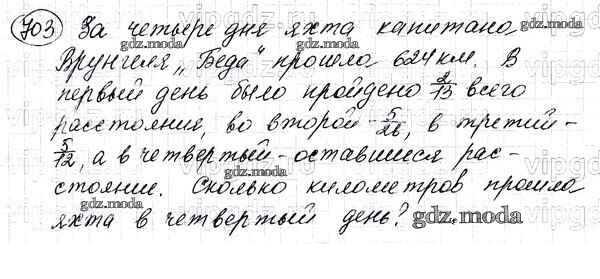 703 За четыре дня яхта капитана
Врунгеля „Беда“ прошла 624 км. В
первый день было пройдено 2/13 всего
расстояния, во второй - 5/26, в третий -
5/12, а в четвертый - оставшееся рас-
стояние. Сколько километров прошла
яхта в четвертый день?
gdz.moda